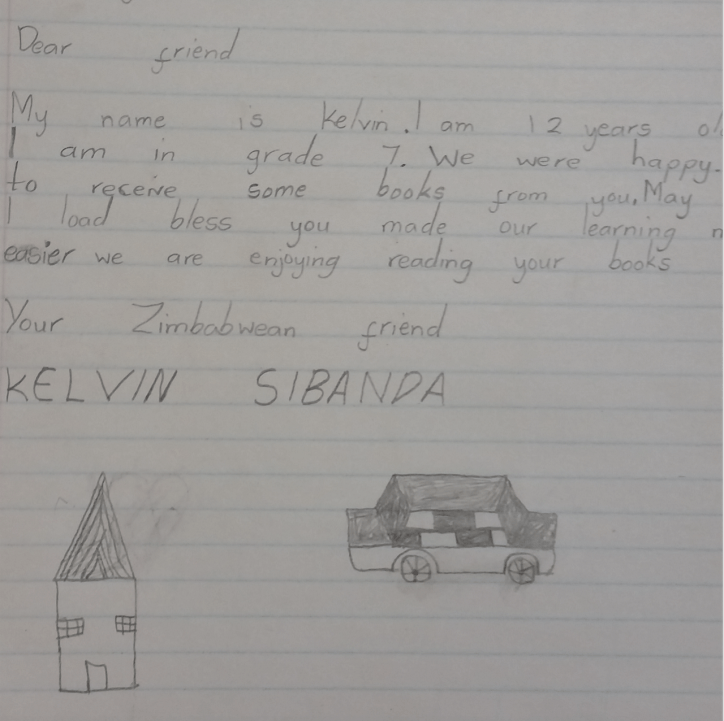 Dear friend
My name is Kelvin. I am 12 years ol
I am in grade 7. We were happy.
to receive some books from you. May
I load bless you made our learning n
easier we are enjoying reading your books
Your Zimbabwean friend
KELVIN SIBANDA